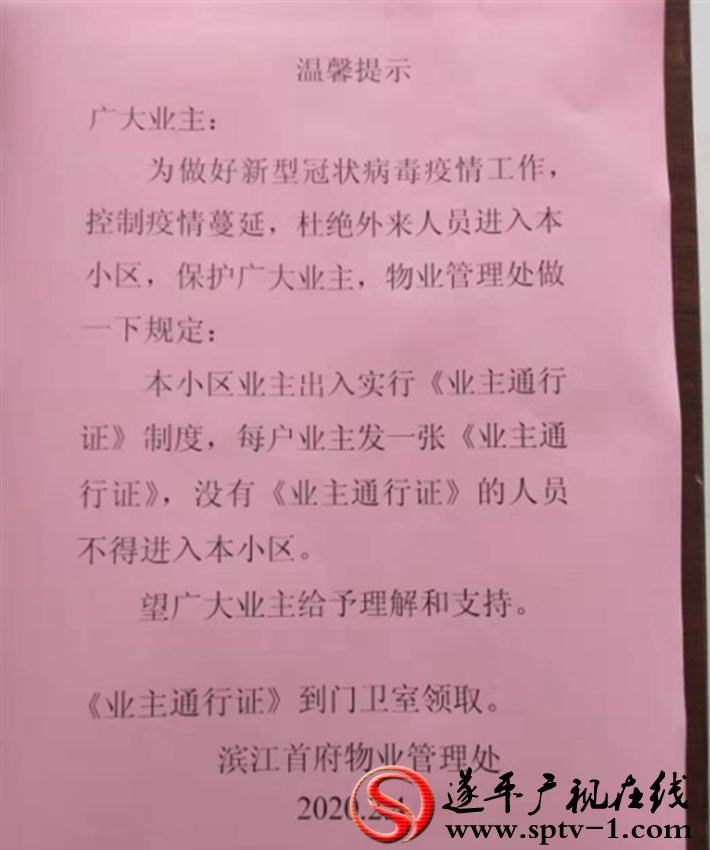 温馨提示
广大业主：
为做好新型冠状病毒疫情工作，
控制疫情蔓延，杜绝外来人员进入本
小区，保护广大业主，物业管理处做
一下规定：
本小区业主出入实行《业主通行
证》制度，每户业主发一张《业主通
行证》，没有《业主通行证》的人员
不得进入本小区。
望广大业主给予理解和支持。
《业主通行证》到门卫室领取。
滨江首府物业管理处
2020.2.4
遂平广视在线
www.sptv-1.com